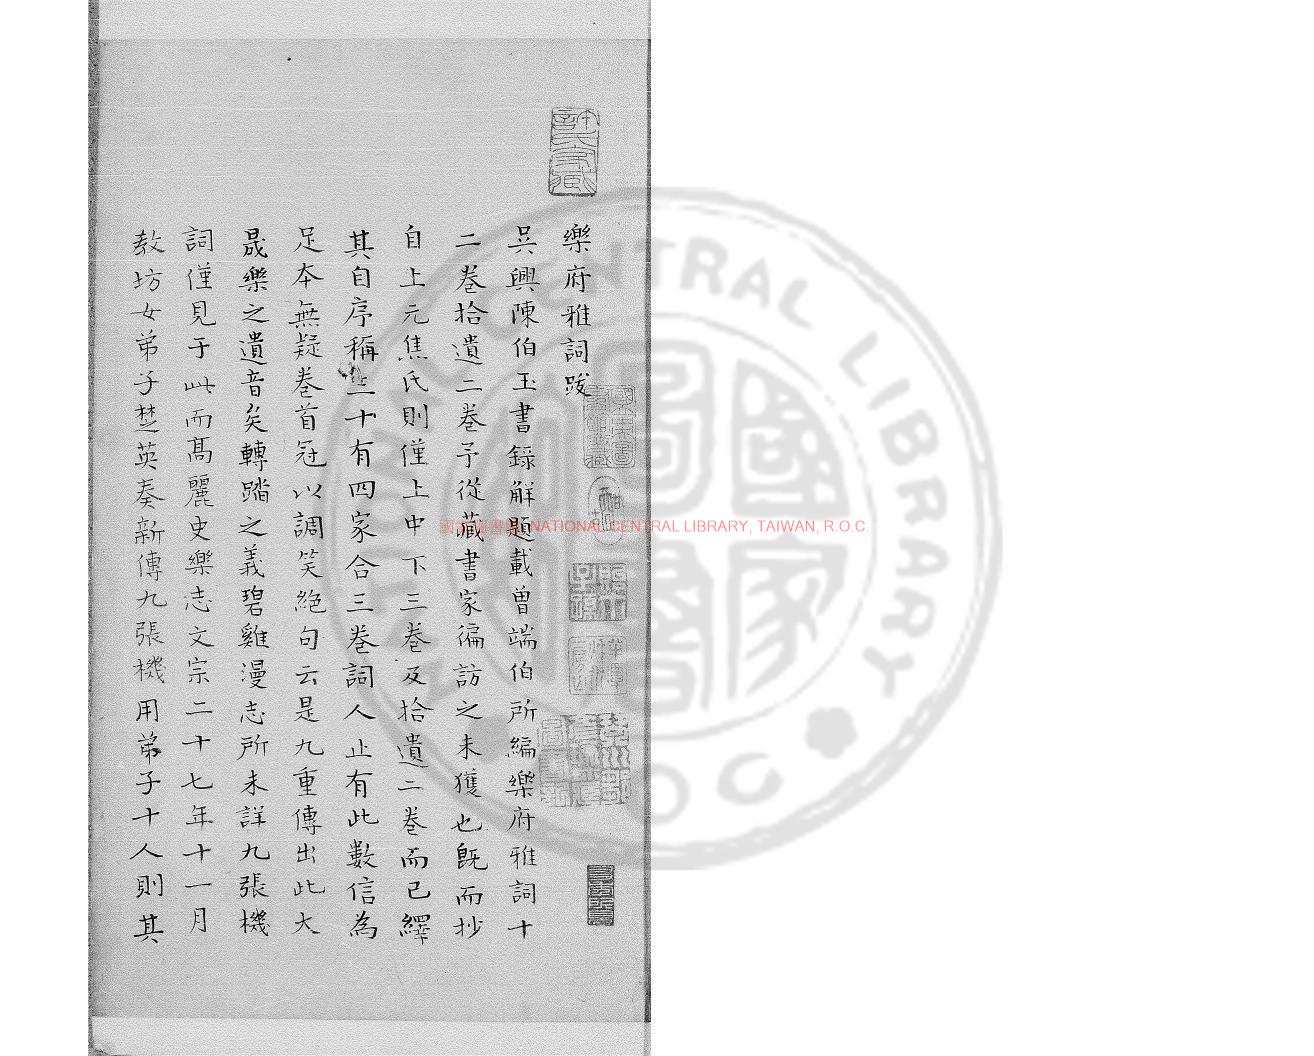 樂府雅詞跋
吳興陳伯玉書錄解題載曾端伯所編樂府雅詞十
二卷拾遺二卷予從藏書家徧訪之未獲也旣而抄
自上元焦氏則僅上中下三卷及拾遺二卷而已繹
其自序稱三十有四家合三卷詞人止有此數信為
足本無疑卷首冠以調笑絕句云是九重傳出此大
晟樂之遺音矣轉踏之義碧雞漫志所未詳九張機
詞僅見于此而高麗史樂志文宗二十七年十一月
教坊女弟子楚英奏新傳九張機用弟子十人則其
許氏家藏
國家圖書館 NATIONAL CENTRAL LIBRARY, TAIWAN, R.O.C.
NATIONAL CENTRAL LIBRARY
ROC
國家圖書